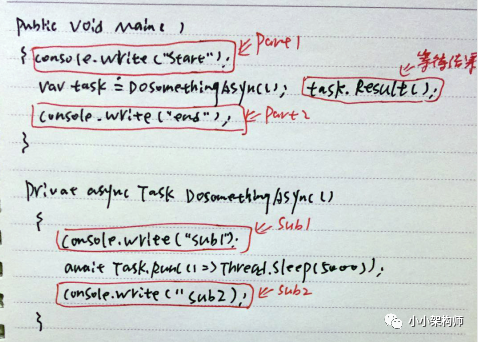 Public void Main()
{ console.write("Start"); Part1
var task = DosomethingAsync(); task.Result(); 等待结果
console.write("end"); Part2
}
Privat async Task DosomethingAsync()
{
console.write("sub1"); Sub1
await Task.Run(()=>Thread.Sleep(5000));
console.write("sub2); sub2
}
小小架构师